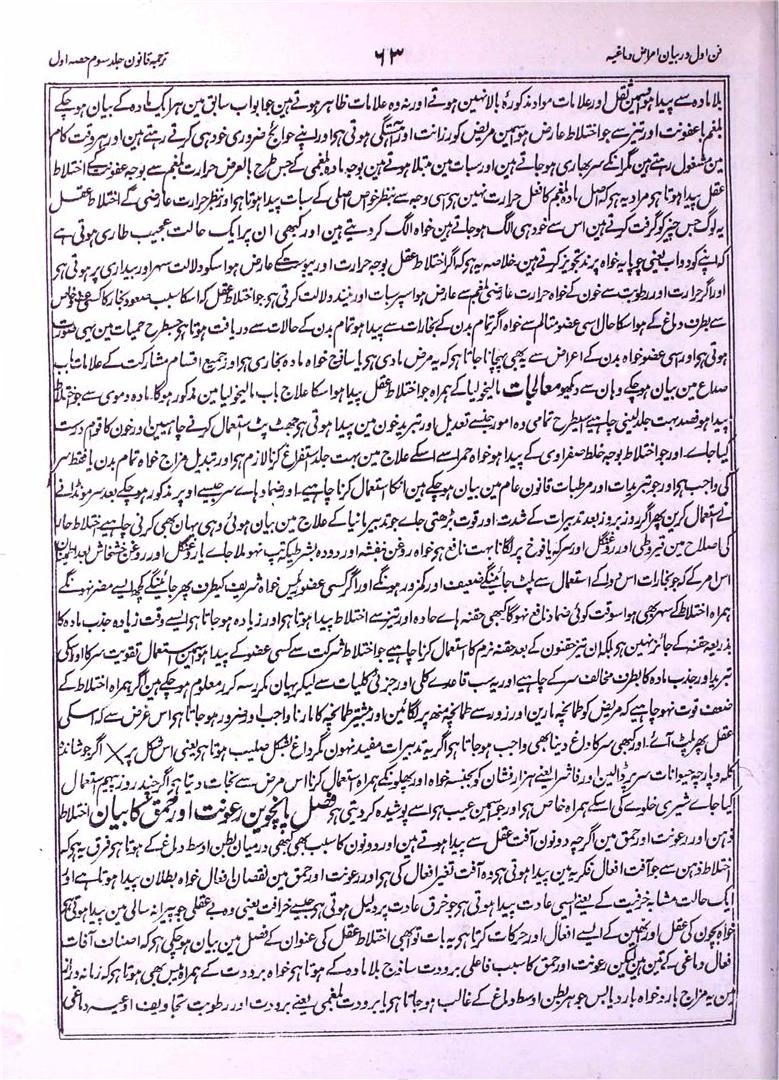 فن اول در بیان امراض دماغیہ ۶۳ ترجمہ قانون جلد سوم حصہ اول
بلا مادہ سے پیدا ہو اسمین ثقل اور علامات مواد مذکورۂ بالا نہین ہوتے اور نہ وہ علامات ظاہر ہوتے ہین جو ابواب سابق مین ہر ایک مادہ کے بیان ہو چکے
بلغم باعفونت اور تیز سے جو اختلاط عارض ہو اسمین مریض کو رزانت اور آہستگی ہوتی ہی اور اپنے حوائج ضروری خود ہی کرتے رہتے ہین اور ہر وقت کام
مین مشغول رہتے ہین مگر انکے سر بھاری ہو جاتے ہین اور سبات مین مبتلا ہوتے ہین بوجہ مادہ بلغمی کے جس طرح بالعرض حرارت بلغم سے بوجہ عفونت کے اختلاط
عقل پیدا ہوتا ہو مراد یہ ہو کہ اصل مادہ بلغم کا فعل حرارت نہین ہو اسی وجہ سے بنظر خواص اصلی کے سبات پیدا ہوتا ہو اور بنظر حرارت عارضی کے اختلاط عقل
یہ لوگ جس چیز کو گرفت کرتے ہین اس سے خود ہی الگ ہو جاتے ہین خواہ الگ کر دیتے ہین اور کبھی ان پر ایک حالت عجیب طاری ہوتی ہے
کہ اپنے کو دواب یعنی چوپایہ خواہ پرند تجویز کرتے ہین خلاصہ یہ ہو کہ اگر اختلاط عقل بوجہ حرارت اور یبوست کے عارض ہو اسکو دلالت سہر اور بیداری پر ہوتی ہو
اور اگر حرارت اور رطوبت سے خون کے خواہ حرارت عارضی بلغم سے عارض ہو اسپر سبات اور نیند دلالت کرتی ہو جو اختلاط عقل کہ اسکا سبب صعود بخار کا کسی عضو خاص
سے بطرف دماغ کے ہو اسکا حال اسی عضو متالم سے خواہ اگر تمام بدن کے بخارات سے پیدا ہو تمام بدن کے حالات سے دریافت ہوتا ہو جسطرح حمیات مین یہی صورت
ہوتی ہو اور اسی عضو خواہ بدن کے اعراض سے یہ بھی پہچانا جاتا ہو کہ یہ مرض مادی ہو یا ساذج خواہ مادہ بخاری ہو اور جمیع اقسام مشارکت کے علامات باب
صداع مین بیان ہو چکے وہان سے دیکھو معالجات مالیخولیا کے ہمراہ جو اختلاط عقل پیدا ہو اسکا علاج باب مالیخولیا مین مذکور ہوگا۔ مادہ دموی سے جو اختلاط
پیدا ہو فصد بہت جلد لینی چاہیے اسیطرح تمامی وہ امور جنسے تعدیل اور تبرید خون مین پیدا ہوتی ہو جھٹ پٹ استعمال کرنے چاہیین اور خون کا قوام درست
کیا جائے۔ اور جو اختلاط بوجہ خلط صفراوی کے پیدا ہو خواہ حمرا سے اسکے علاج مین بہت جلد استفراغ کرنا لازم ہو اور تبدیل مزاج خواہ تمام بدن یا فقط سر
کی واجب ہو اور جو تبریدات اور مرطبات قانون عام مین بیان ہو چکے ہین انکا استعمال کرنا چاہیے۔ اور ضماد ہاے سر جیسے اوپر مذکور ہو چکے بعد سر مونڈانے
کے استعمال کرین پھر اگر روز بروز بعد تدبیرات کے شدت اور قوت بڑھتی جاے جو تدبیر مانیا کے علاج مین بیان ہوئی وہی یہان بھی کرنی چاہیے اختلاط حار
کی اصلاح مین قیروطی اور روغن گل اور سرکہ یا فوخ پر لگانا بہت نافع ہو خواہ روغن بنفشہ اور دودہ بشرطیکہ تپ نہو ملا جاے یا روغن گل اور روغن خشخاش بعد اطمینان
اس امر کے کہ جو بخارات اس دوا کے استعمال سے پلٹ جائینگے ضعیف اور کمزور ہونگے اور اگر کسی عضو رئیس خواہ شریف کیطرف پھر جائینگے کچھ ایسے مضر نہونگے
ہمراہ اختلاط کے سہر بھی ہو اسوقت کوئی ضماد نافع نہو گا کبھی حقنہ ہاے حادہ اور تیز سے اختلاط پیدا ہوتا ہو اور زیادہ ہو جاتا ہو ایسے وقت زیادہ جذب مادہ کا
بذریعہ حقنہ کے جائز نہین ہو بلکہ ان تیز حقنون کے بعد حقنہ نرم کا استعمال کرنا چاہیے جو اختلاط شرکت سے کسی عضو کے پیدا ہو اسمین استعمال تقویت سر کا اور اسکی
تبرید اور جذب مادہ کا بطرف مخالف سر کے چاہیے اور یہ سب قاعدے کلی اور جزئی کلیات سے لیکر یہان تک سہ کرر معلوم ہو چکے ہین اگر ہمراہ اختلاط کے
ضعف قوت نہو چاہیے کہ مریض کو طمانچہ مارین اور زور سے طمانچہ منھ پر لگائین اور بیشتر طمانچہ کا مارنا واجب اور ضرور ہو جاتا ہو اس غرض سے کہ اسکی
عقل پھر پلٹ آئے اور کبھی سر کا داغ دینا بھی واجب ہو جاتا ہو اگر یہ تدبیرات مفید نہون مگر داغ بشکل صلیب ہوتا ہو یعنی اس شکل پر X اگر جوشاندہ
کلہ و پارچہ حیوانات سر پر ڈالین اور فاشرا یعنے ہزار فشان کو بجنسہ خواہ اور پھلونکے ہمراہ استعمال کرنا اس مرض سے نجات دیتا ہو اگر چند روز پیہم استعمال
کیا جاے شیری حلوے کی اسکے ہمراہ خاص ہو اور جو اسمین عیب ہو اسے پوشیدہ کر دیتی ہو فصل پانچوین رعونت اور حمق کا بیان اختلاط
ذہن اور رعونت اور حمق مین اگرچہ دونون آفت عقل سے پیدا ہوتے ہین اور دونون کا سبب بھی کبھی درمیان بطن اوسط دماغ کے ہوتا ہو فرق یہ ہو کہ
اختلاط ذہن سے جو آفت افعال فکریہ مین پیدا ہوتی ہو وہ آفت تغیر افعال کی ہو اور رعونت اور حمق مین نقصان افعال خواہ بطلان پیدا ہوتا ہے اور
ایک حالت مشابہ خرفیت کے یعنے ایسی عادت پیدا ہوتی ہو جو خرق عادت پر دلیل ہوتی ہو جیسے خرافت یعنی وہ بے عقلی جو پیرانہ سالی مین پیدا ہوتی ہو
خواہ بچون کی عقل اور بچپن کے ایسے افعال اور حرکات کرتا ہو یہ بات تو بھی اختلاط عقل کی عنوان کے فصل مین بیان ہو چکی ہو کہ اصناف آفات
فعال دماغی کے تین ہین لیکن رعونت اور حمق کا سبب فاعلی برودت ساذج بلا مادہ کے ہوتا ہو خواہ برودت کے ہمراہ یبس بھی ہوتا ہو کہ زمانہ دراز
مین یہ مزاج بارد خواہ بارد یابس جوہر بطن اوسط دماغ کے غالب ہو جاتا ہو یا برودت بلغمی یعنے برودت اور رطوبت تجاویف اوعیہ دماغی